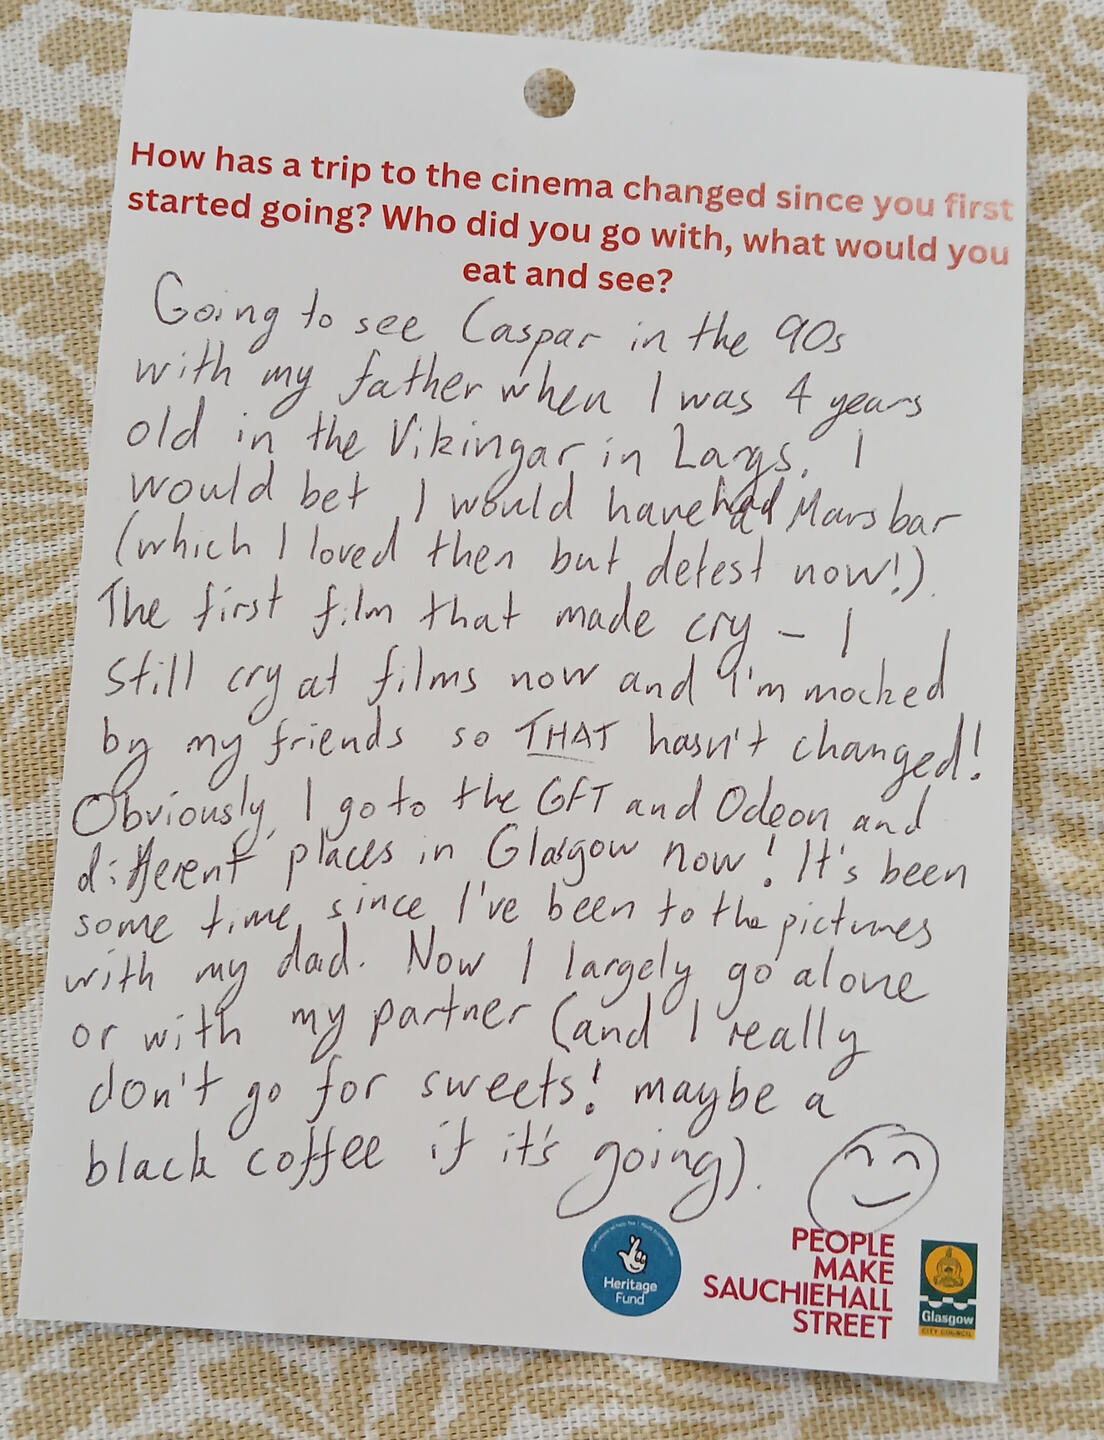 How has a trip to the cinema changed since you first
started going? Who did you go with, what would you
eat and see?
Going to see Caspar in the 90s
with my father when I was 4 years
old in the Vikingar in Largs. I
would bet I would have had Mars bar
(which I loved then but detest now!).
The first film that made cry - I
still cry at films now and I'm mocked
by my friends so THAT hasn't changed!
Obviously, I go to the GFT and Odeon and
different places in Glasgow now! It's been
some time since I've been to the pictures
with my dad. Now I largely go alone
or with my partner (and I really
don't go for sweets! maybe a
black coffee if it's going).
Heritage
Fund
PEOPLE
MAKE
SAUCHIEHALL
STREET
Glasgow
CITY COUNCIL